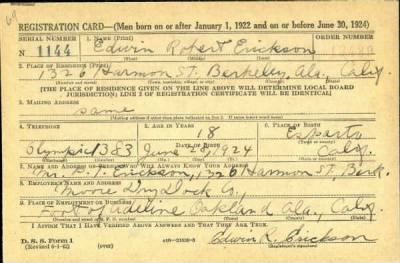 REGISTRATION CARD—(Men born on or after January 1, 1922 and on or before June 30, 1924)
SERIAL NUMBER 1. NAME (Print) ORDER NUMBER
N 1144 Edwin Robert Erickson
2. PLACE OF RESIDENCE (Print)
1326 Harmon St. Berkeley, Ala., Calif.
[THE PLACE OF RESIDENCE GIVEN ON THE LINE ABOVE WILL DETERMINE LOCAL BOARD
JURISDICTION; LINE 2 OF REGISTRATION CERTIFICATE WILL BE IDENTICAL]
3. MAILING ADDRESS
same
4. TELEPHONE 5. AGE IN YEARS 6. PLACE OF BIRTH
18 Esparto
Olympic 1383 DATE OF BIRTH
June 1924 Calif.
7. NAME AND ADDRESS OF PERSON WHO WILL ALWAYS KNOW YOUR ADDRESS
Erickson, 1326 Harmon St, Berk.
8. EMPLOYER'S NAME AND ADDRESS
Moore Drydock Co.,
9. PLACE OF EMPLOYMENT OR BUSINESS
Foot of Adeline Oakland Ala., Calif.
I AFFIRM THAT I HAVE VERIFIED ABOVE ANSWERS AND THAT THEY ARE TRUE.
D. S. S. Form 1
(Revised 6-1-42) (over) Edwin R. Erickson